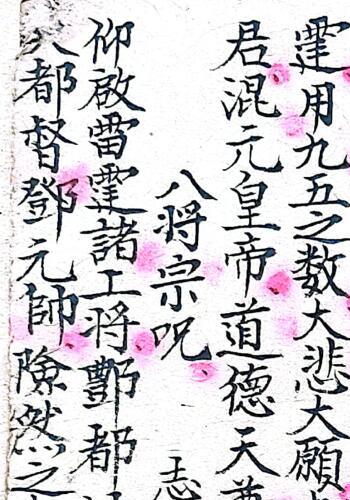 霆用九五之数大悲大願
君混元皇帝道德天尊
八将宗呪
仰啟雷霆諸工将酆都
都督鄧元帥險然之